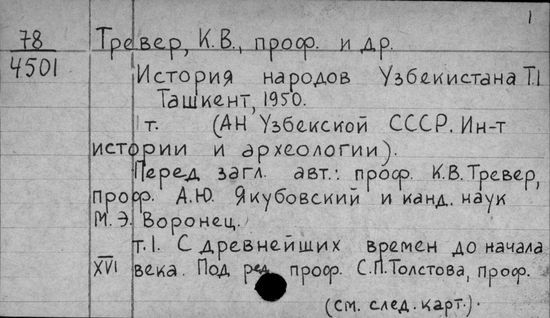 1
78 Тревер, К.В., проф. и др.
4501 История народов Узбекистана Т.1
Ташкент, 1950.
т. (АН Узбекской СССР. Ин-т
истории и археологии).
Перед загл. авт.: проф. К.В. Тревер,
проф. А.Ю. Якубовский и канд. наук
М.Э. Воронец.
т.1. С древнейших времен до начала
XVI века. Под ред. проф. С.П.Толстова, проф.
(см. след. карт.).